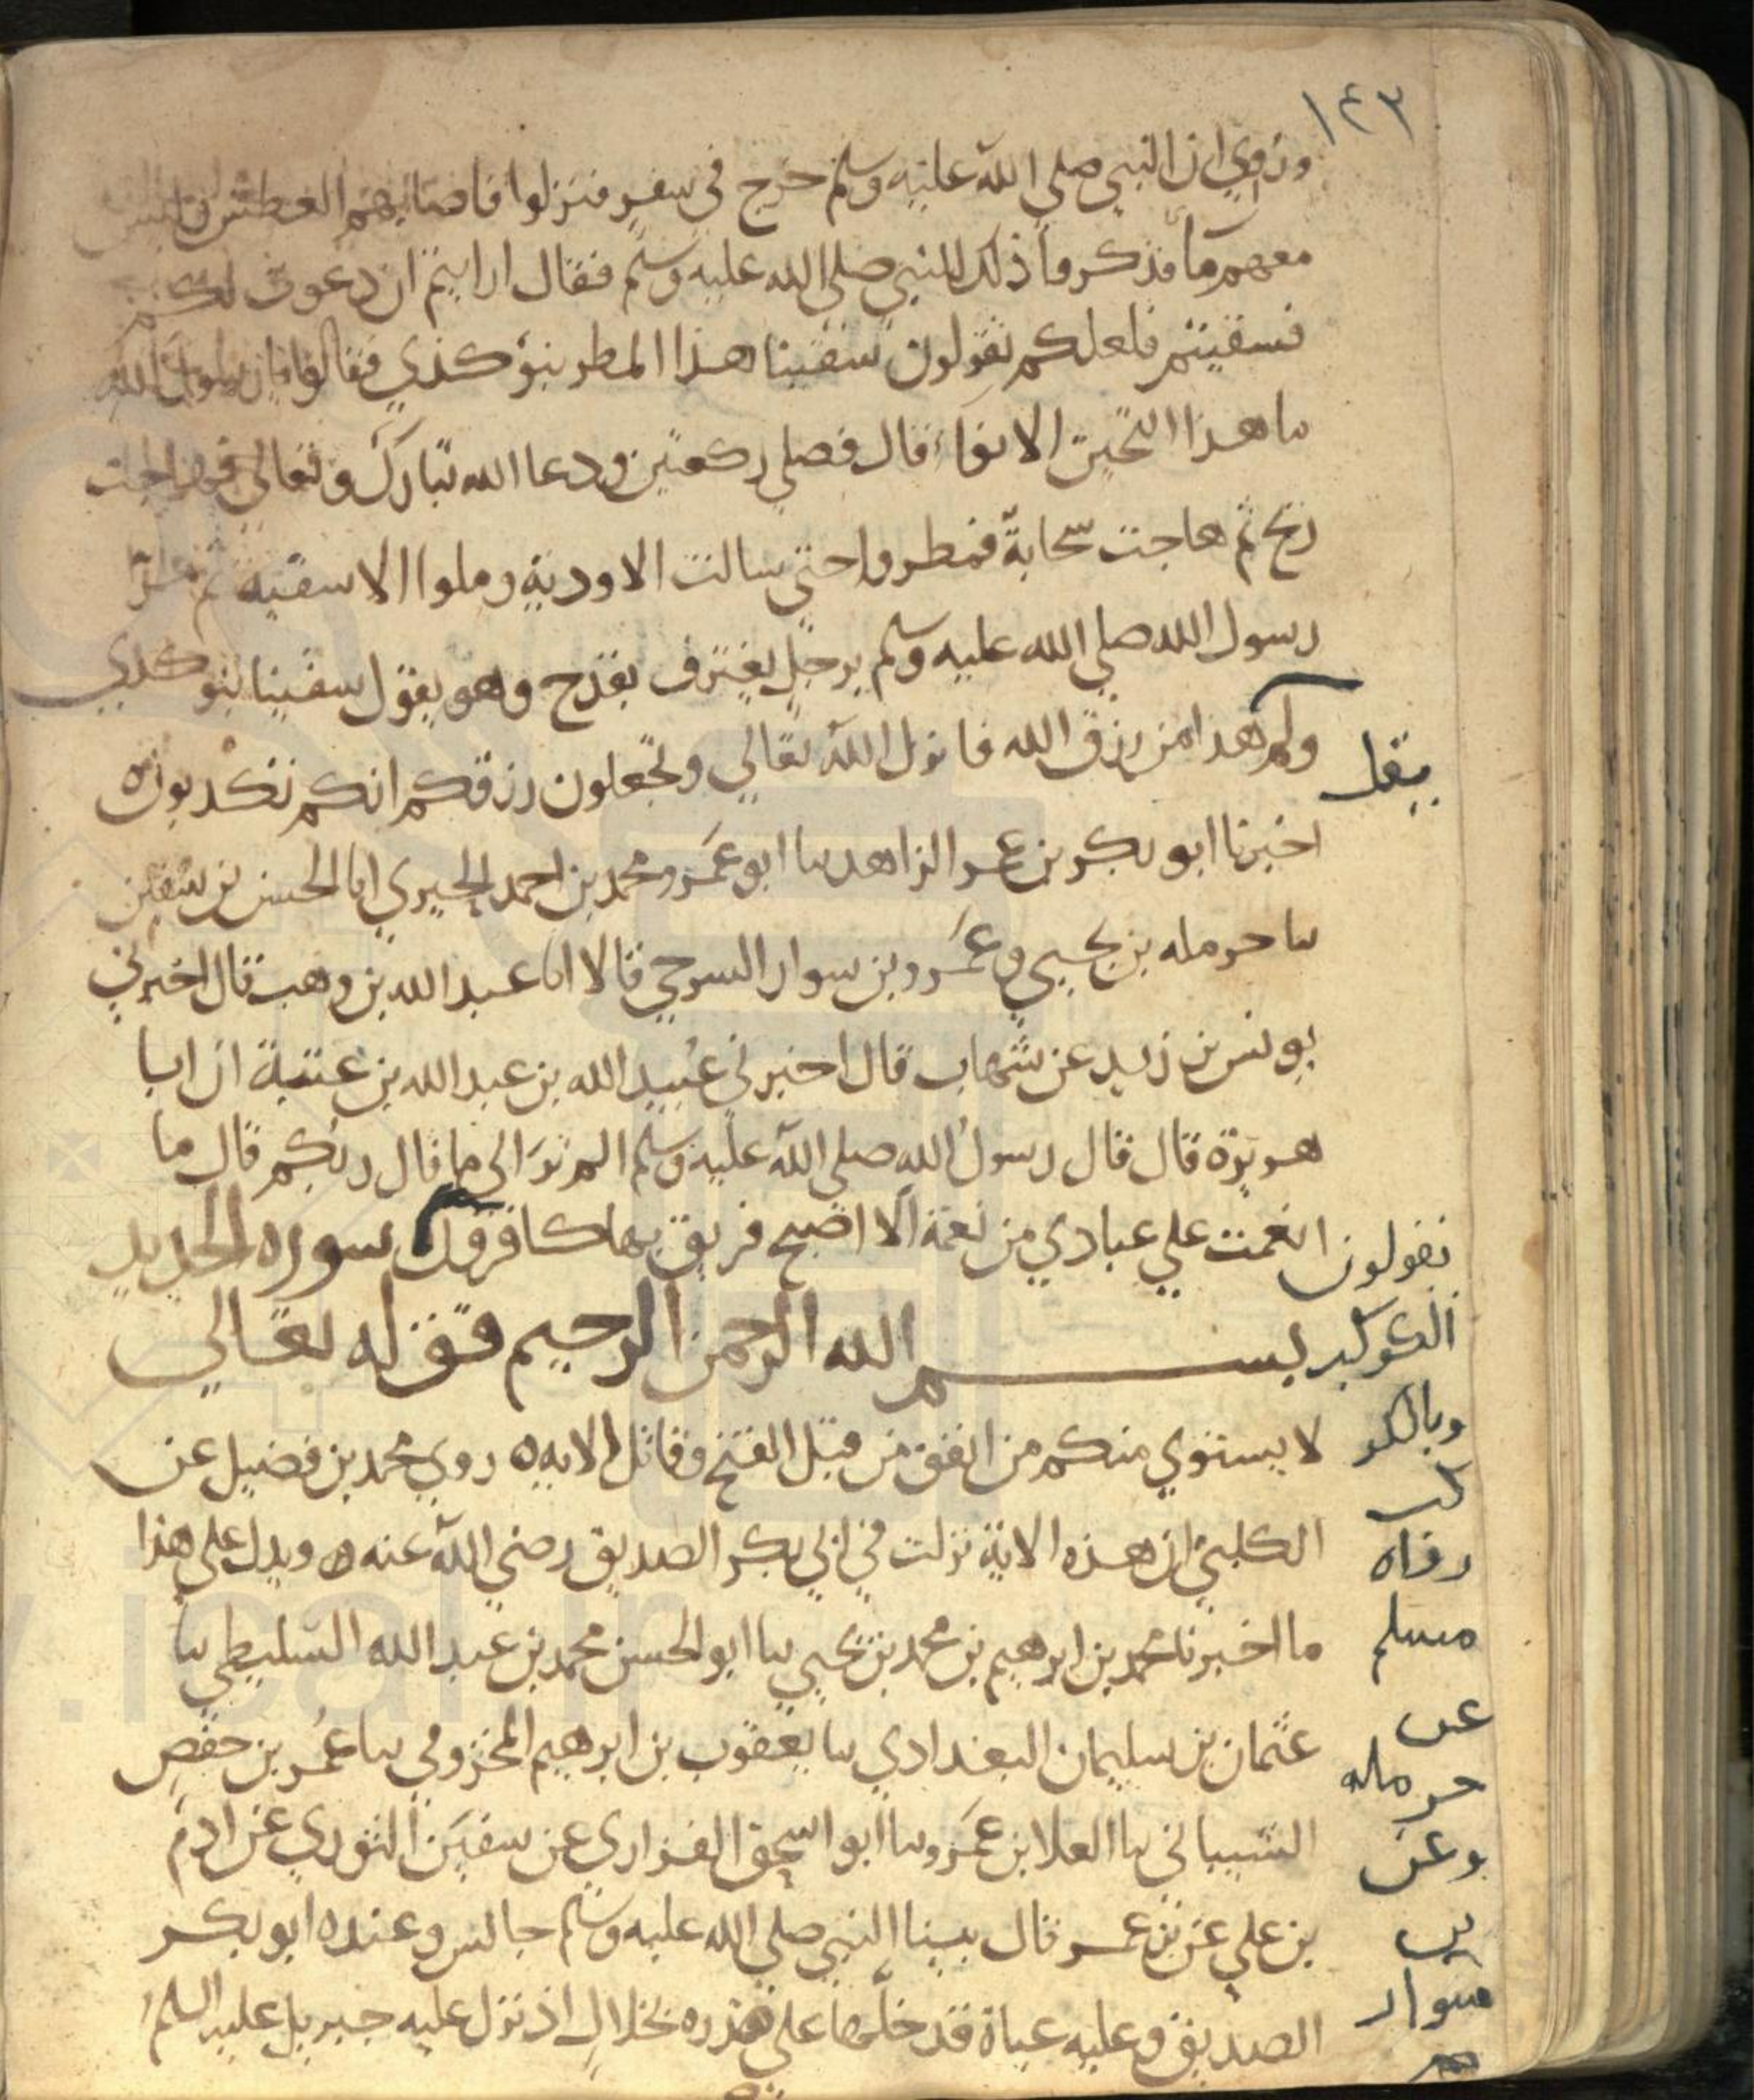 ١٤٣
وروي ان النبي صلي الله عليه وسلم خرج في سفر فنزلوا فاصابهم العطش وليس
معهم ما فذكروا ذلك للنبي صلي الله عليه وسلم فقال ارايتم ان دعوت لكم
فسقيتم فلعلكم تقولون سقينا هذا المطر بنو كذي فقالوا يا رسول الله
ما هذا بحين الانوا قال فصلي ركعتين ودعا الله تبارك وتعالي فهاجت
ريح ثم هاجت سحابة فمطروا حتي سالت الاودية وملوا الاسقية ثم مر
رسول الله صلي الله عليه وسلم برجل يغترف بقدح وهو يقول سقينا بنو كذي
ولم هذا من رزق الله فانزل الله تعالي وتجعلون رزقكم انكم تكذبون ه
يقل
اخبرنا ابو بكر بن عمر الزاهد نا ابو عمرو محمد بن احمد الحيري انا الحسن بن سفين
نا حرمله بن يحيي وعمرو بن سوار السرحي قالا انا عبد الله بن وهب قال اخبرني
يونس بن زيد عن شهاب قال اخبرني عبيد الله بن عبد الله بن عتبة ان ابا
هريرة قال قال رسول الله صلي الله عليه وسلم الم تر الي ما قال ربكم قال ما
انعمت علي عبادي من نعمة الا اصبح فريق بها كافرون سورة الحديد
بسم الله الرحمن الرحيم قوله تعالي
لا يستوي منكم من انفق من قبل الفتح وقاتل الايه ه روي محمد بن فضيل عن
الكلبي ان هذه الاية نزلت في ابي بكر الصديق رضي الله عنه ه ويدل علي هذا
ما اخبرنا محمد بن ابرهيم بن محمد بن يحيي نا ابو الحسن محمد بن عبد الله السليطي نا
عثمان بن سليمان البغدادي نا يعقوب بن ابرهيم المخزومي نا عمر بن حفص
الشيباني نا العلا بن عمرو نا ابو اسحق الفزاري عن سفين الثوري عن ادم
بن علي عن بن عمر قال بينا النبي صلي الله عليه وسلم جالس وعنده ابو بكر
الصديق وعليه عباة قد خلها علي صدره بخلال اذ نزل عليه جبريل عليه السلم
يقولون
الكوكب
وبالكو
كب
رواه
مسلم
عن
حرمله
وعن
بن
سوار